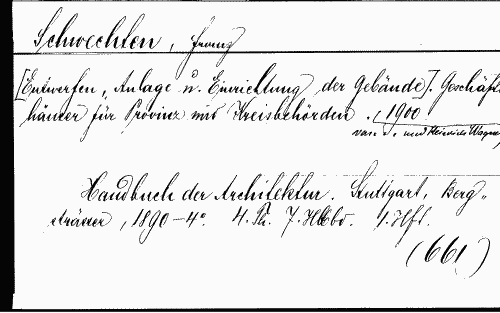 Schwechten, Franz
[Entwerfen, Anlage u. Einrichtung der Gebäude]. Geschäfts
häuser für Provinz und Kreisbehörden. (1900
van u. und Heinrich Wagner)
Handbuch der Architektur. Stuttgart, Berg-
strässer, 1890-4°. 4. Th. 7. Hlbbd. 1. Hft.
(661)